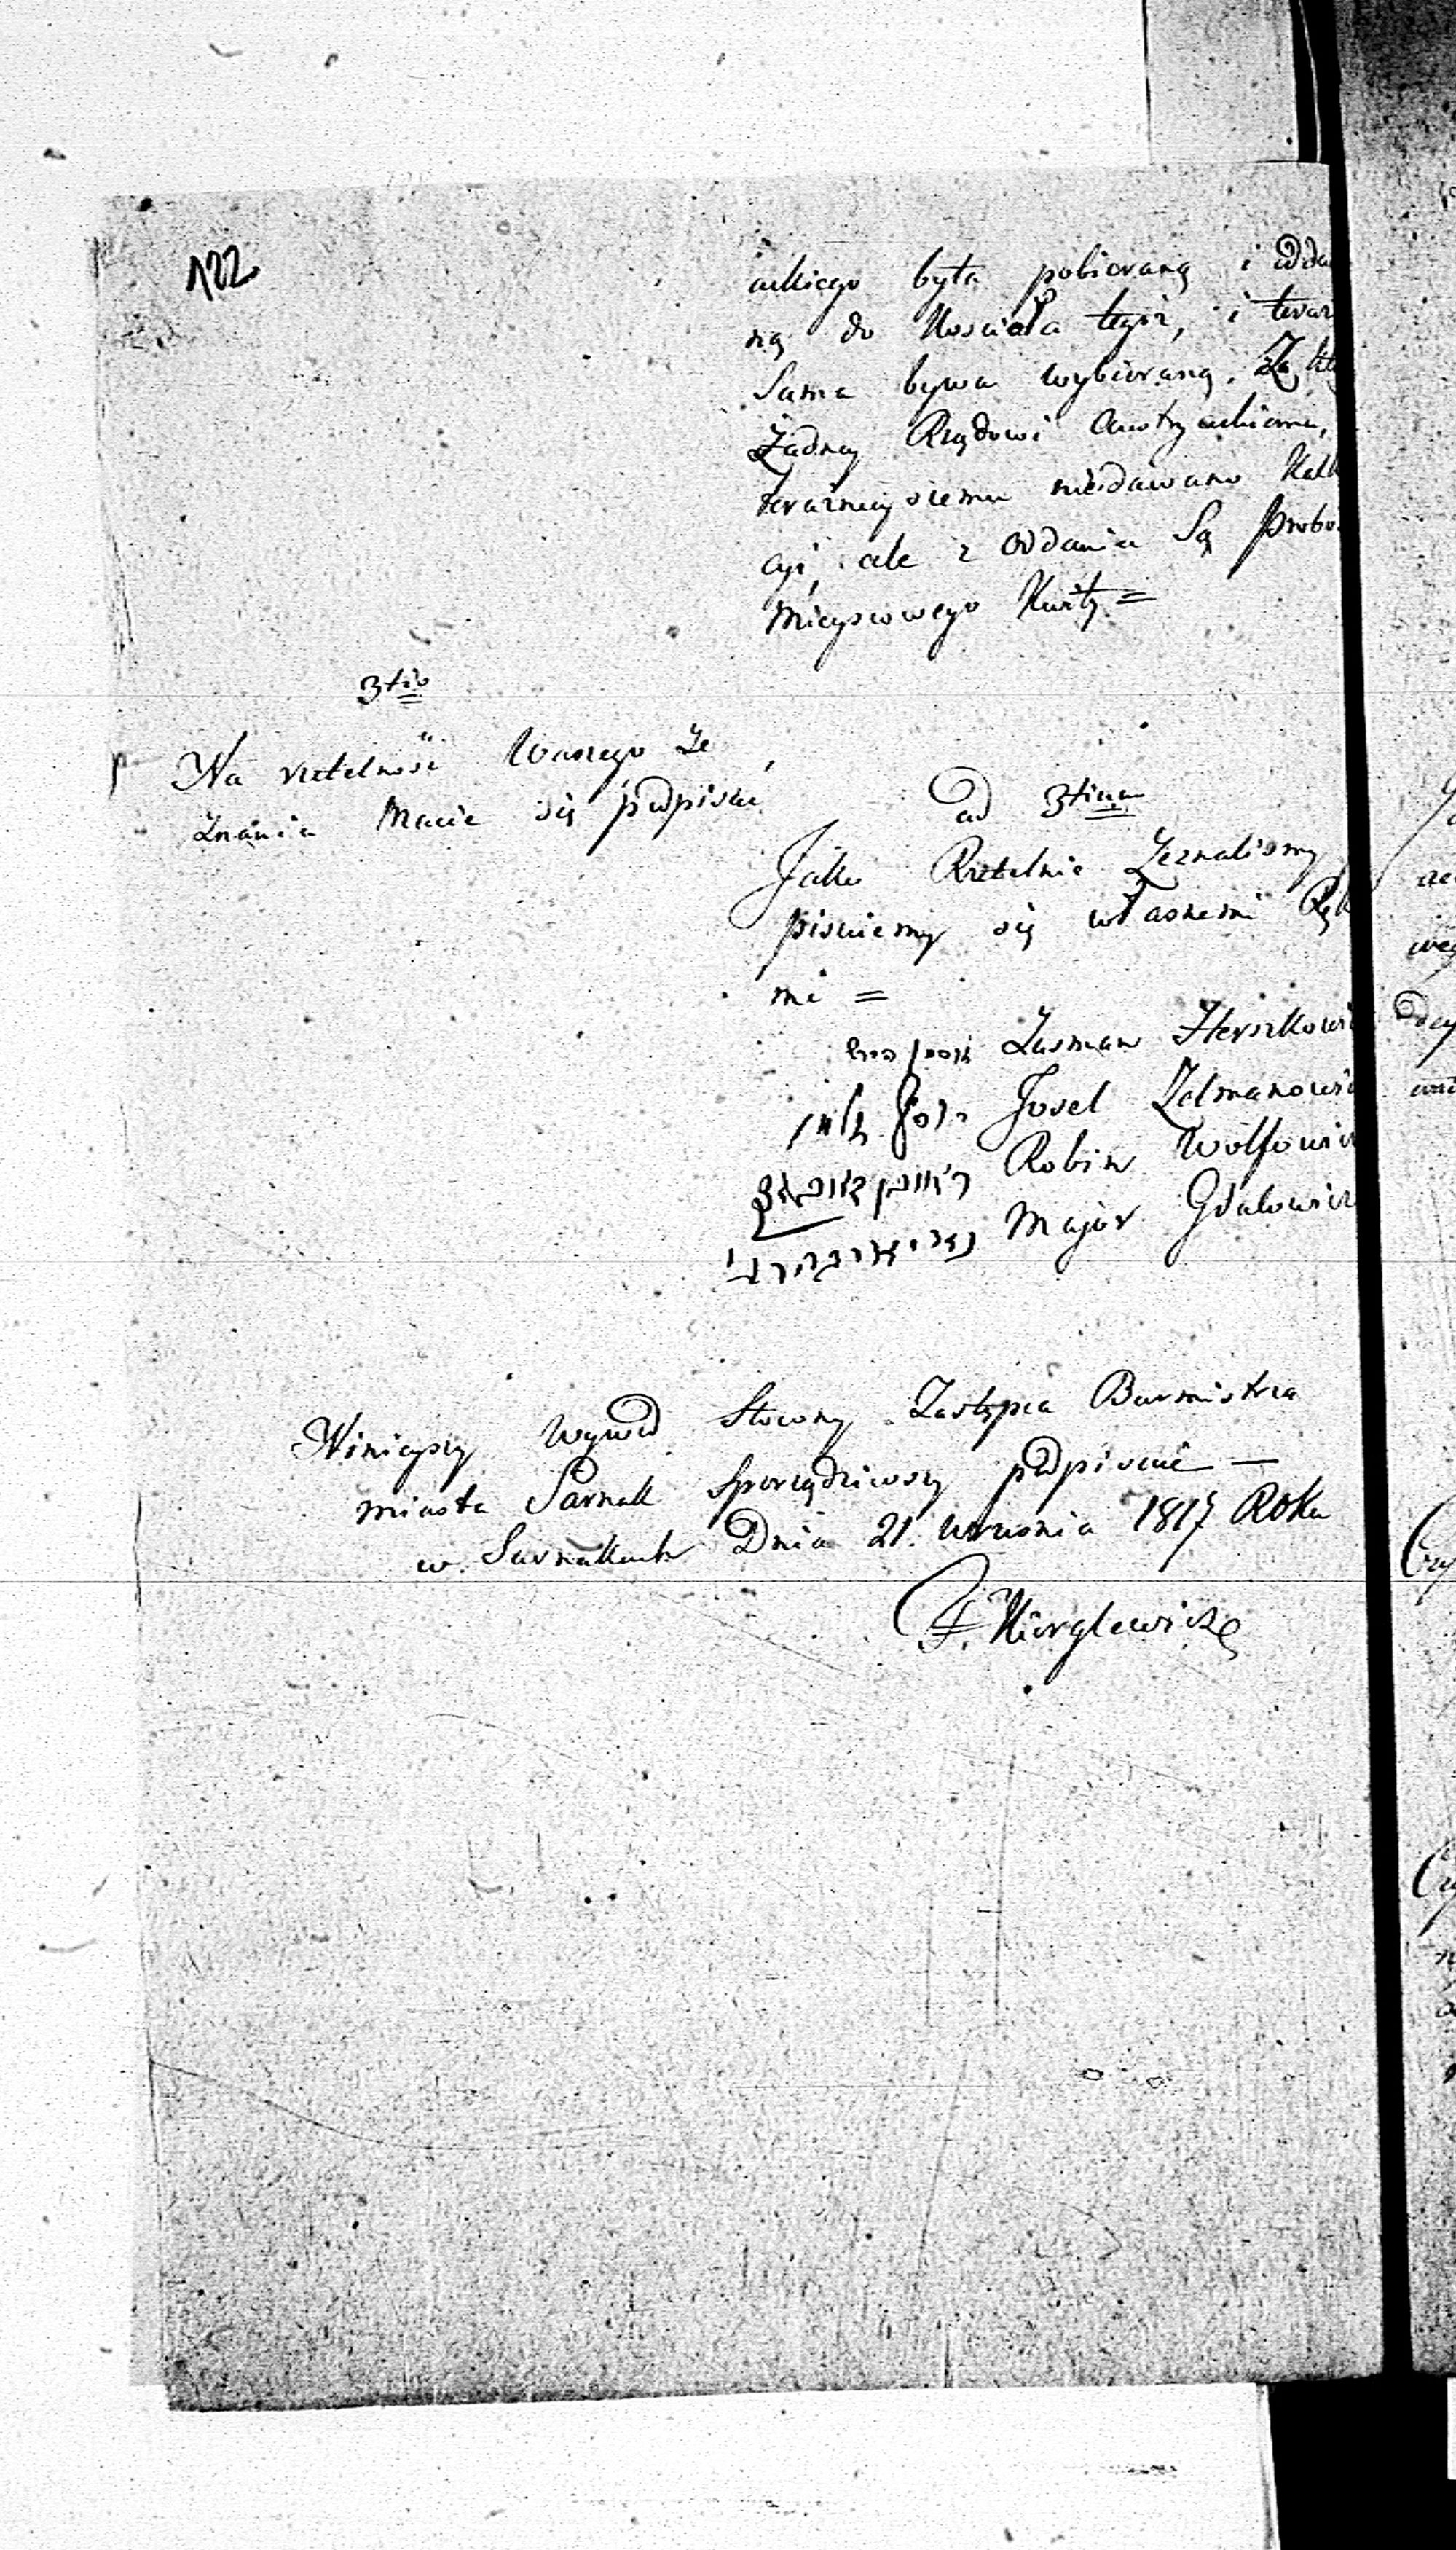 122
-ackiego była pobieraną i odda
ną do Kościoła tegoż, i teraz
Sama bywa wybieraną. Za
Żadney Rządowi Austryackiemu,
teraznieyszemu niedawano Kalk
cyi, ale z oddania Są Probo
Mieyscowego Kwity =
3tio
Na rzetelność Waszego Ze
znania Macie się podpisać
ad 3tium
Jako Rzetelnie Zeznaliśmy
pisuiemy się własnemi Ręk
mi =
Zusman Herszkowi
Josel Zelmanowi
ראובן Robin Wolfowic
Major Gdalowicz
Ninieyszy Wywód Słowny Zastępca Burmistrza
miasta Sarnak Sporządziwszy podpisuie —
w Sarnakach Dnia 21. Września 1817 Roku